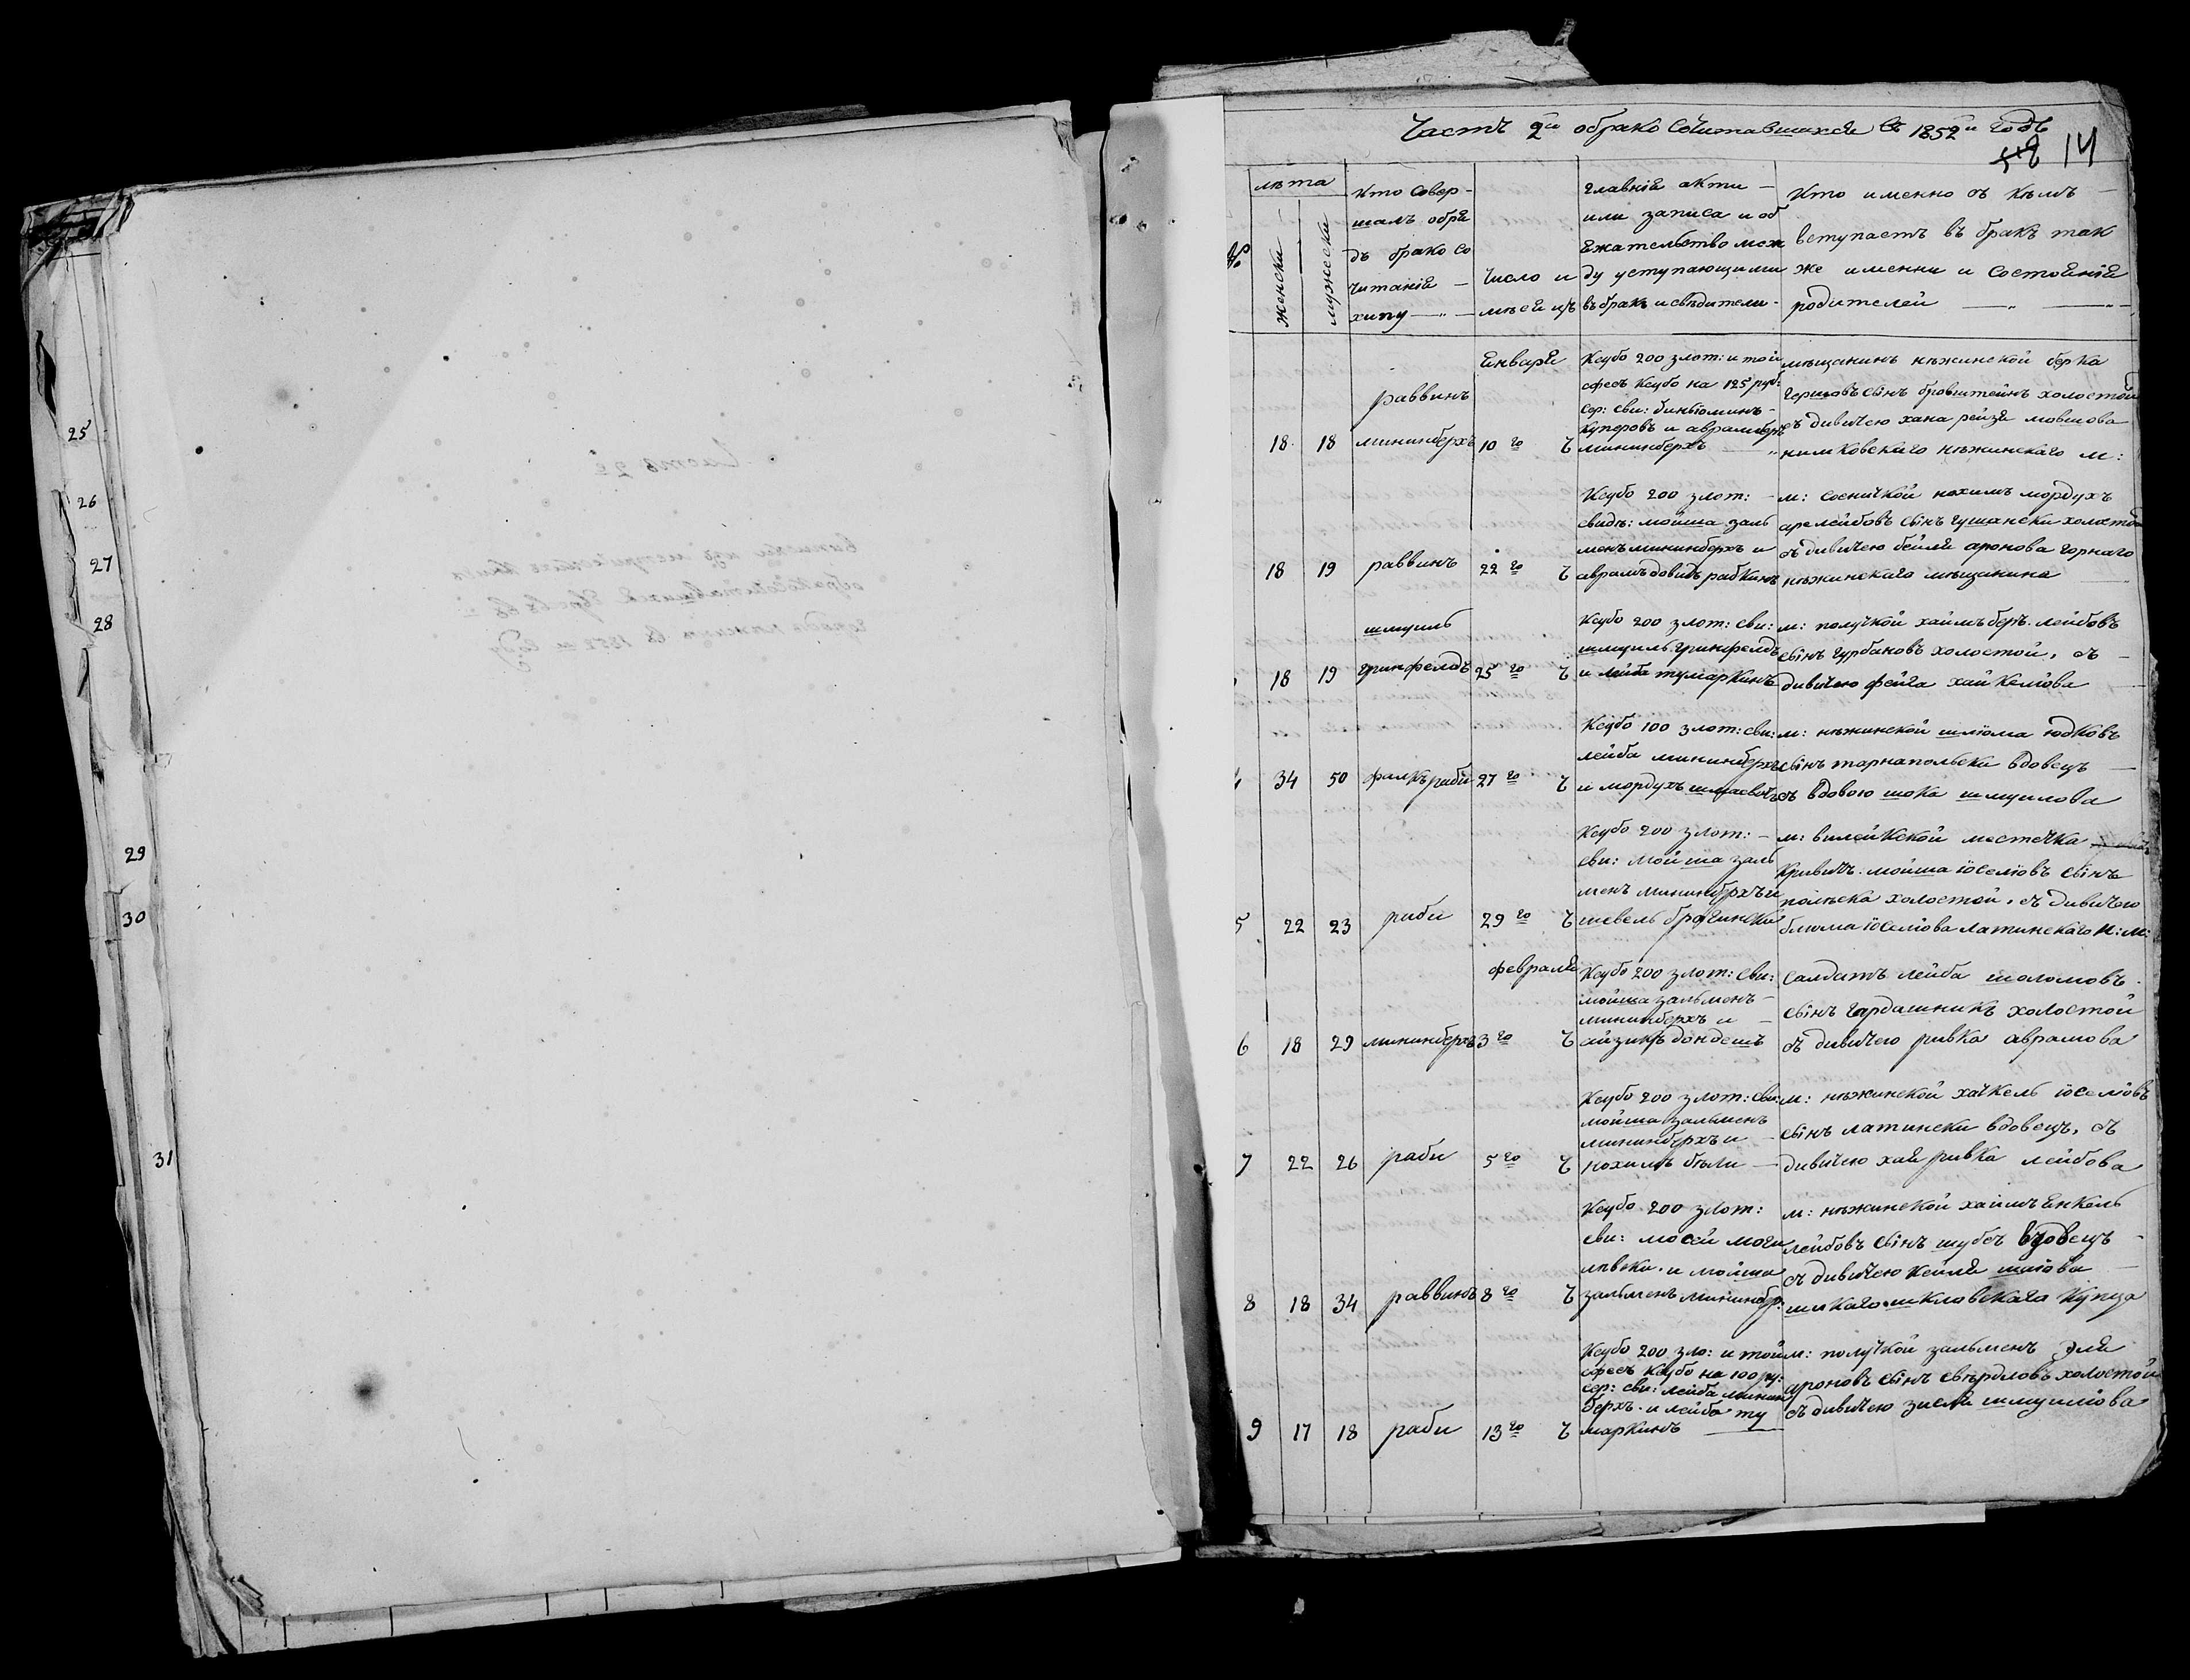 25
26
27
28
29
30
31
Часть 2й обрако сочитавшихся въ 1852м годѣ
14
№
лѣта
женски
мужески
кто совер-
шалъ обря
дъ брако со
читанія —
хипу —
число и
мѣсяцъ
главнія акти —
или записа и об
язательство меж
ду уступающими
въ бракъ и свѣдители -
кто именно съ кѣмъ —
вступаетъ въ бракъ так
же именни и состоянія
родителей — —
18 18
раввинъ
мининберхъ
Января
10го
Ксубо 200 злот: и той
сфесъ Ксубо на 125 руб:
сер: сви: биньюминъ -
куперовъ и аврамберъ
мининберхъ
мѣщанинъ нѣжинской берка
гершовъ сынъ бровштейнъ холостой
съ дивичею хана рейзя мовшова
нимковскаго нѣжинскаго м:
18 19
раввинъ
22го
Ксубо 200 злот: -
свидѣ: мойша заль
менъ мининберхъ и
аврамъ довидъ рабкинъ
м: сосничкой нохимъ мордухъ
арелейбовъ сынъ гушански холостой
съ дивичею бейля аронова горнаго
нѣжинскаго мѣщанина
18 19
шмуиль
гринфелдъ
25го
Ксубо 200 злот: сви:
шмуиль гринфелдъ
и лейба тумаркинъ
м: получкой хаимъ беръ лейбовъ
сынъ гурбановъ холостой, съ —
дивичею фейга хайкелѣова
34 50
фалкъ раби
27го
Ксубо 100 злот: сви:
лейба мининберхъ
и мордухъ
м: нѣжинской шліома юдковъ
сынъ тарнапольски вдовецъ —
съ вдовою шока шмуилова
5 22 23
раби
29го
Ксубо 200 злот: -
сви: мойша заль
менъ мининберхъ и
шевель брагински
м: вилейкской местечка
кривичъ мойша іоселіовъ сынъ
полѣска холостой, съ дивичею
блюма іоселіова латинскаго н: м:
6 18 29
мининберхъ
февраля
3го
Ксубо 200 злот: сви:
мойша зальменъ —
мининберхъ и —
айзикъ дондешъ
салдатъ лейба шоломовъ
сынъ гардашникъ холостой
съ дивичею ривка аврамова
7 22 26
раби
5го
Ксубо 200 злот: сви:
мойша зальменъ
мининберхъ и —
нохимъ бѣли —
м: нѣжинской хачкель іоселіовъ
сынъ латински вдовецъ, съ
дивичею хая ривка лейбова
8 18 34
раввинъ
8го
Ксубо 200 злот:
сви: мосей моги
лѣвски и мойша
зальменъ мининбр:
м: нѣжинской хаимъ Янкель
лейбовъ сынъ шубсъ вдовецъ
съ дивичею кейля шаіова —
шкловскаго купца
9 17 18
раби
13го
Ксубо 200 зло: и той
сфесъ Ксубо на 100 ру:
сер: сви: лейба минин
берхъ и лейба ту
маркинъ
м: получкой зальменъ эля
ароновъ сынъ свѣрдловъ холостой
съ дивичею зисля шмуилова